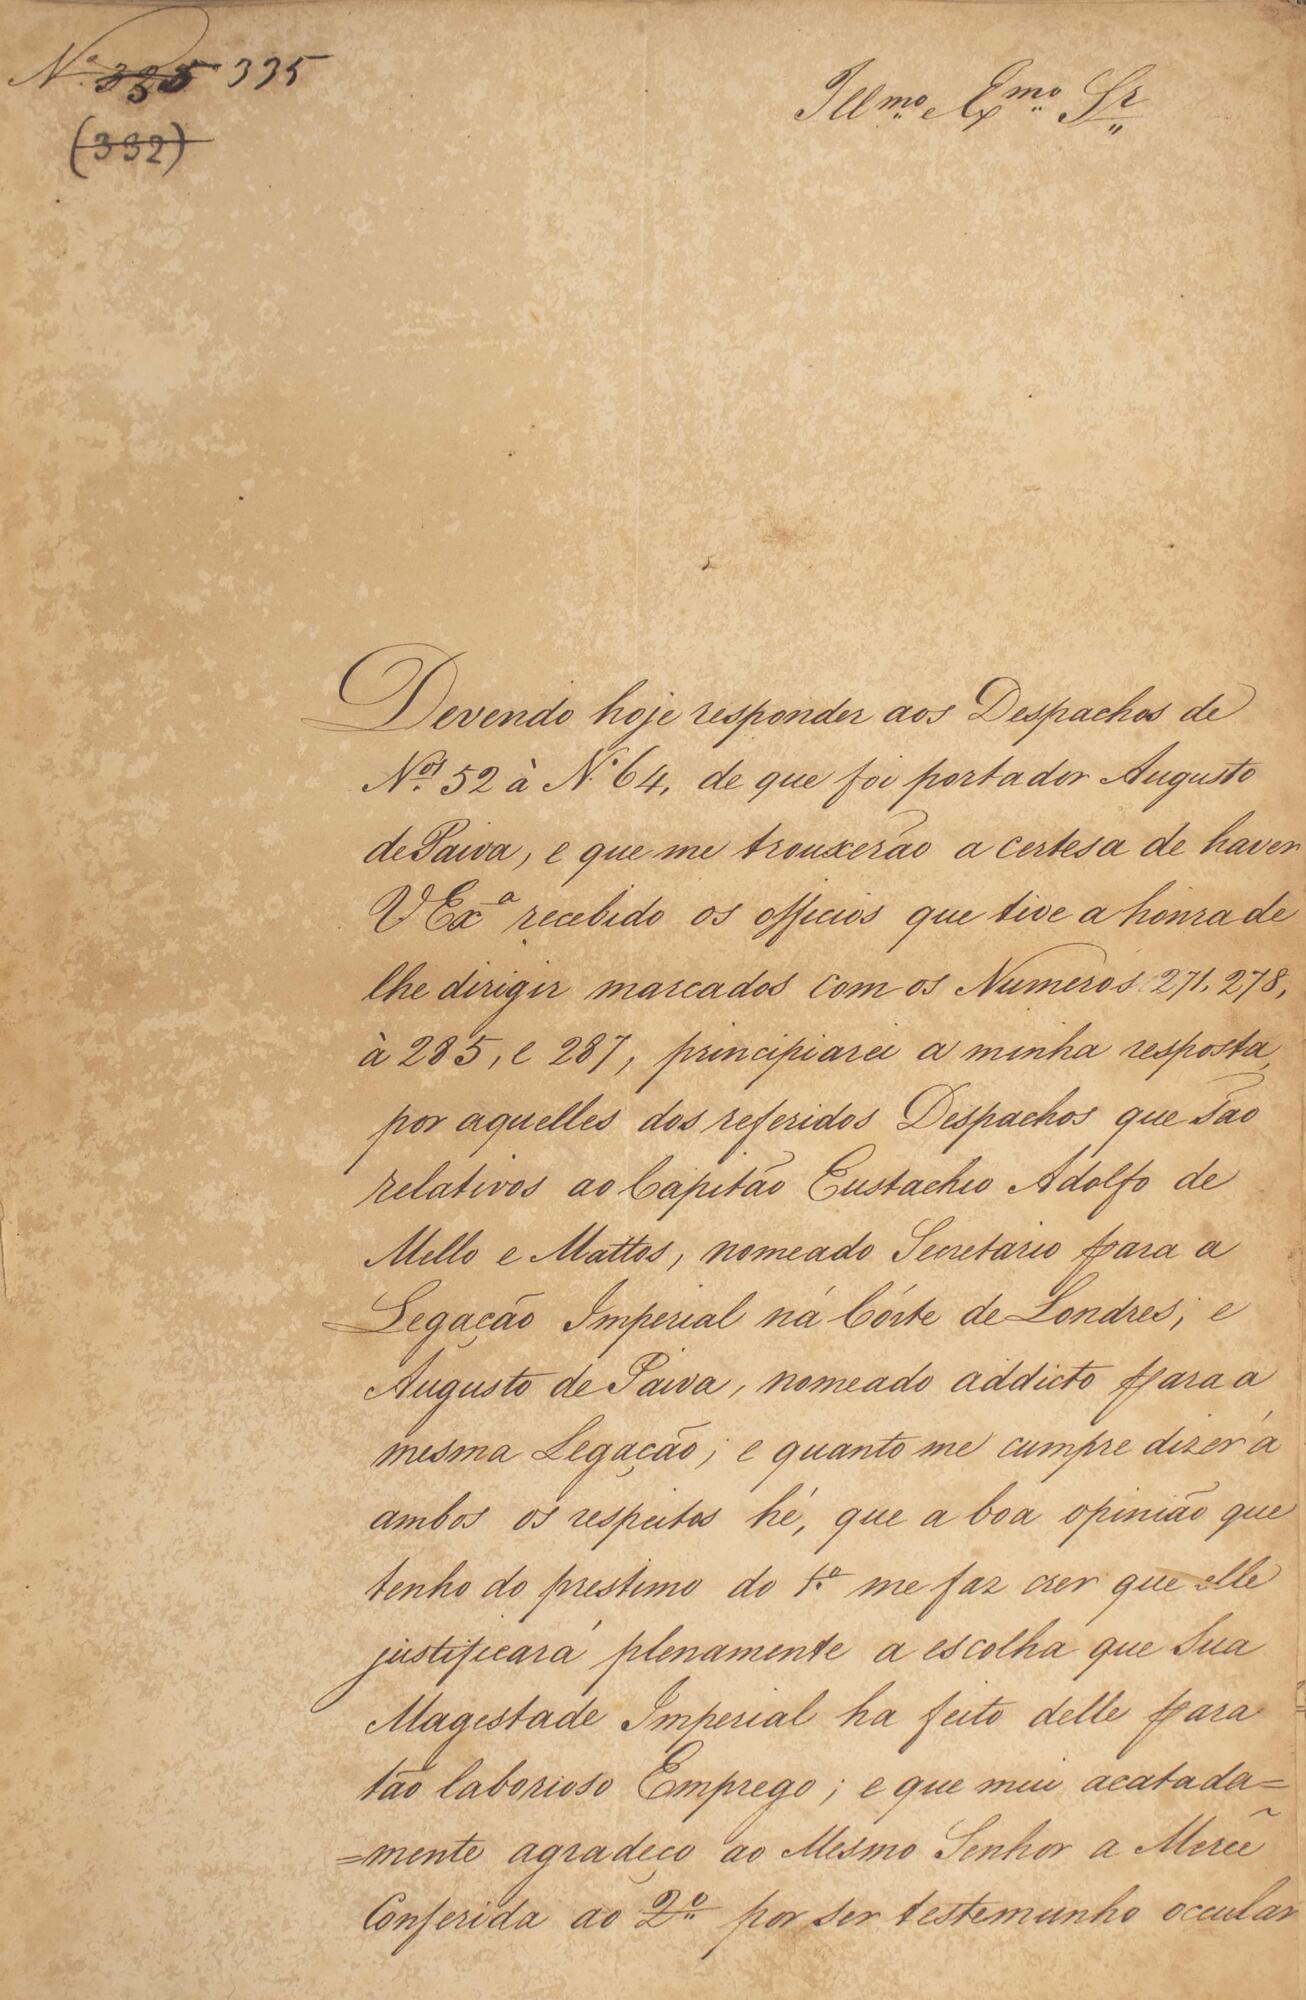 N.º 335 335
(332)
Illmo e Exmo Sr
Devendo hoje responder aos Despachos de
Nos. 52 à N.º 64, de que foi portador Augusto
de Paiva, e que me trouxerão a certesa de haver
V Exª recebido os officios que tive a honra de
lhe dirigir marcados com os Numeros 271, 278,
à 285, e 287, principiarei a minha resposta,
por aquelles dos referidos Despachos que são
relativos ao Capitão Eustachio Adolfo de
Mello e Mattos, nomeado Secretario para a
Legação Imperial ná Côrte de Londres; e
Augusto de Paiva, nomeado addicto para a
mesma Legação; e quanto me cumpre dizer á
ambos os respeitos hé, que a boa opinião que
tenho do prestimo do 1.º me faz crer que elle
justificará plenamente a escolha que Sua
Magestade Imperial ha feito delle para
tão laborioso Emprego; e que mui acatada=
=mente agradeço ao Mesmo Senhor a Mercê
Conferida ao 2º por ser testemunho occular